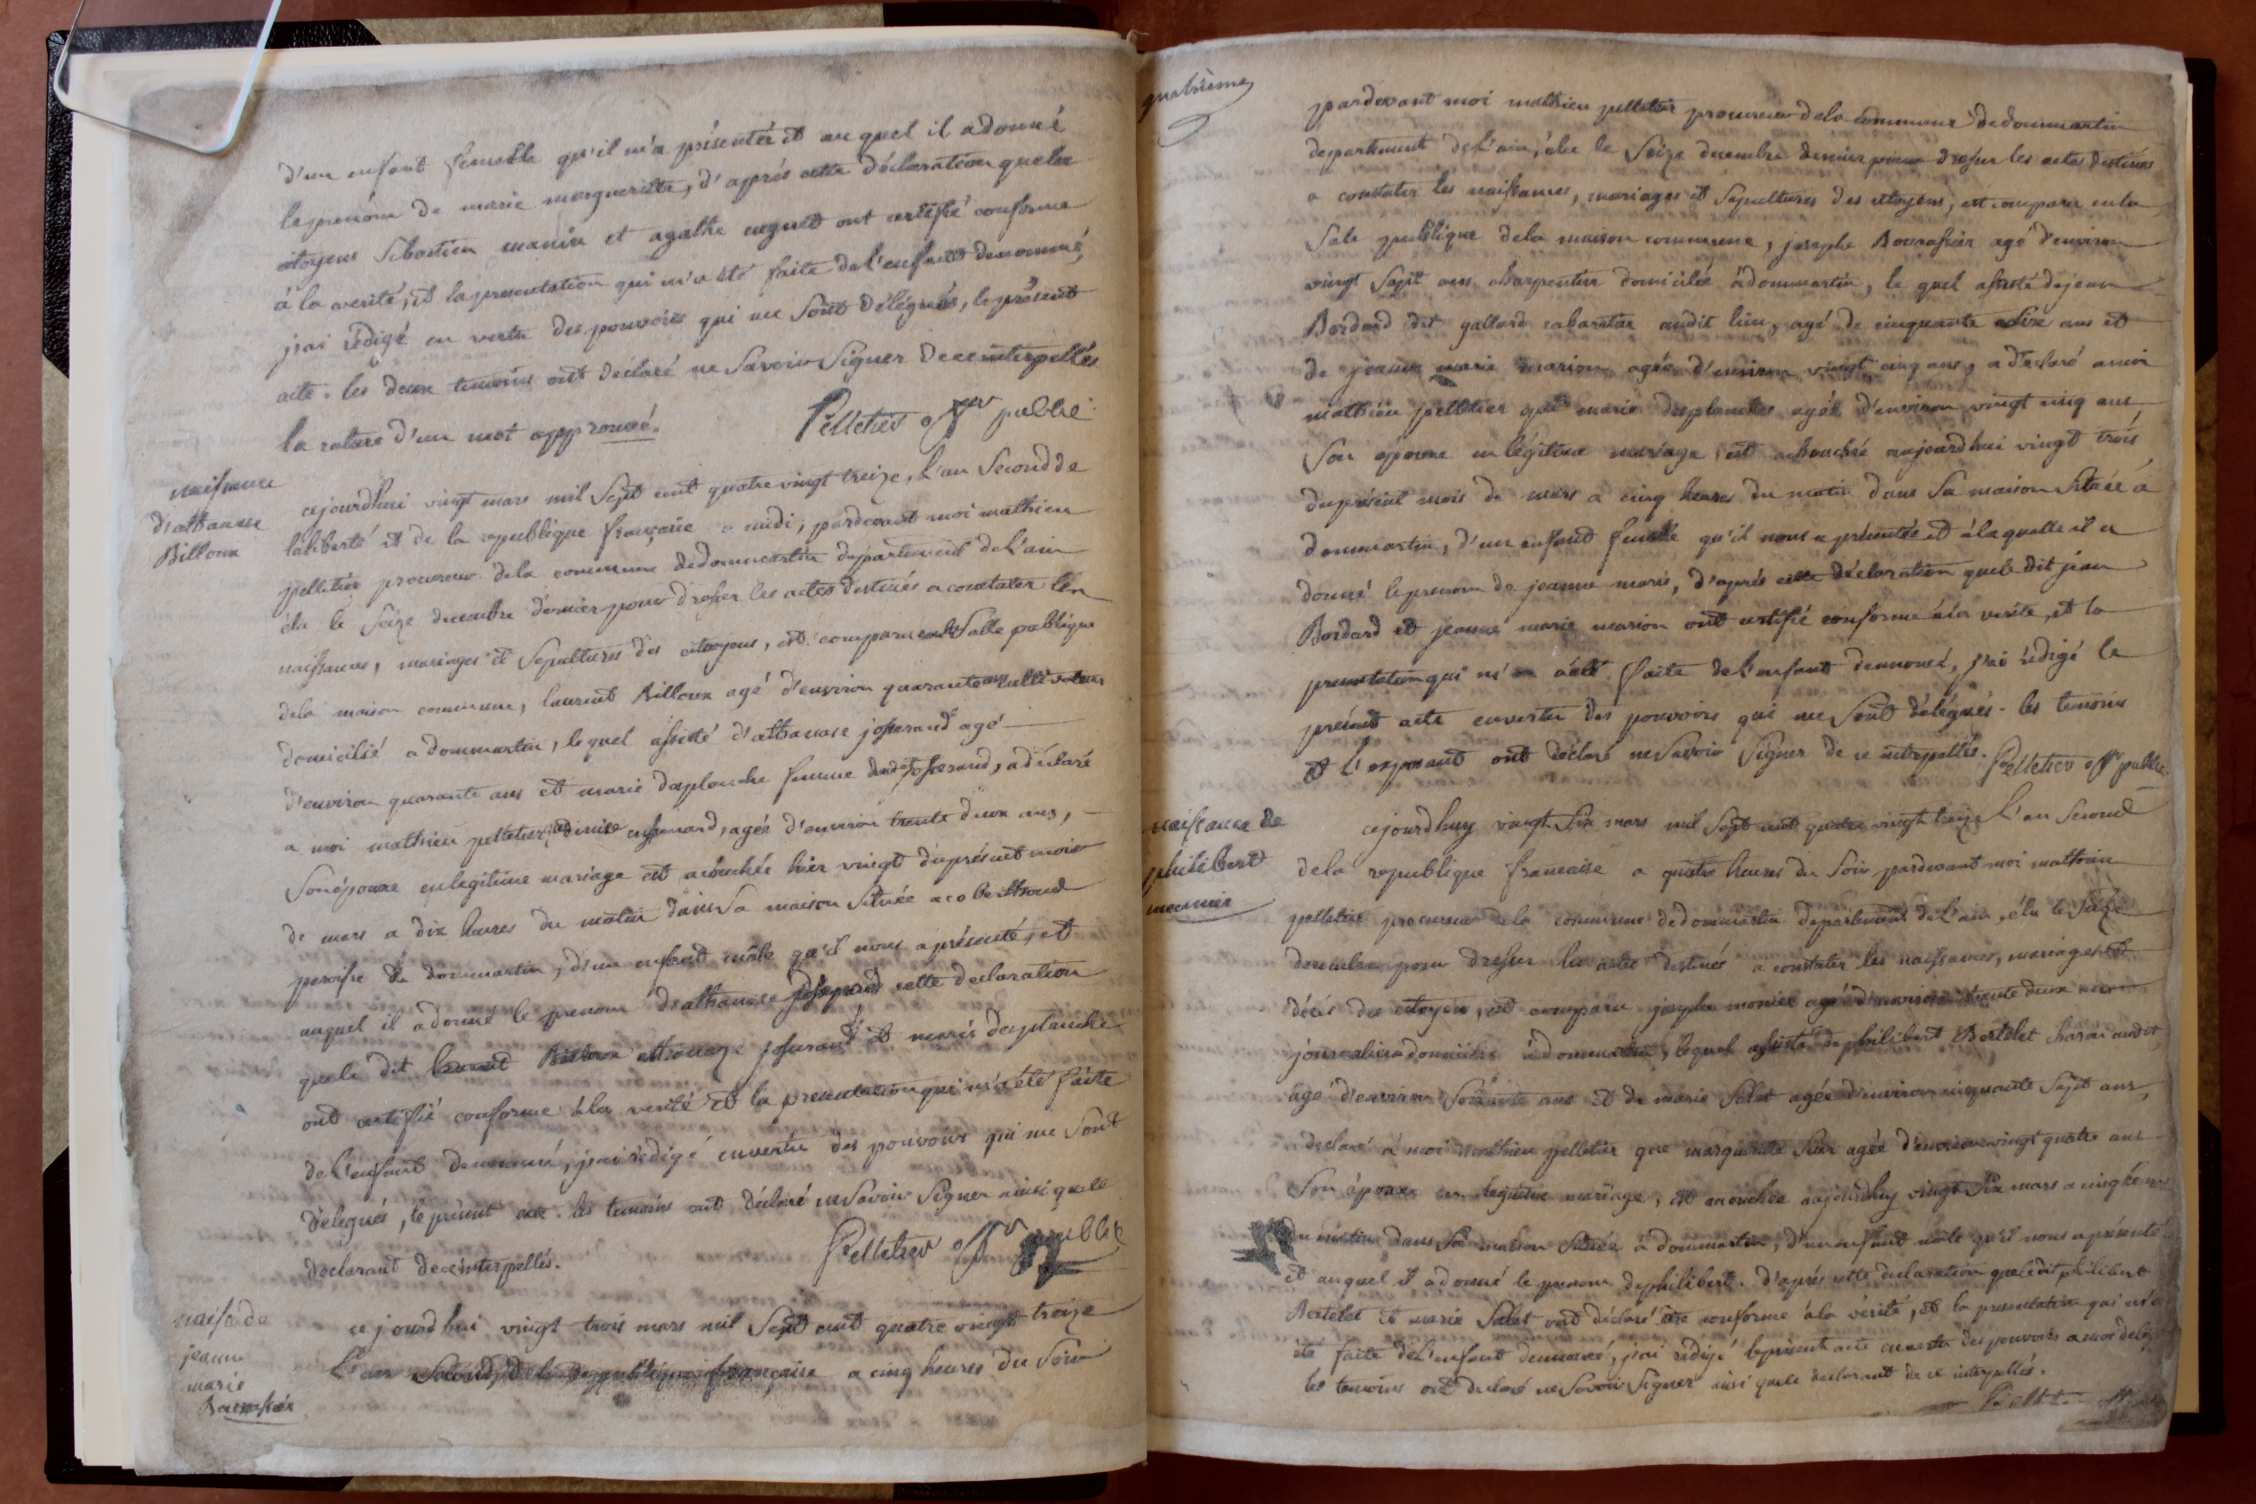 d'un enfant femelle qu'il m'a présenté et au quel il a donné
le prénom de marie margueritte, d'après cette déclaration que les
citoyens Sébastien manin et agathe ont certifié conforme
à la verité, et la presentation qui m'a été faite de l'enfant denommé,
j'ai rédigé en vertu des pouvoirs qui me sont délégués, le présent
acte. les deux temoins ont déclaré ne Savoir Signer de ce interpellés
la rature d'un mot approuvé.
Pelletier offer public
naissance
d'athanase
Billoux
cejourdhui vingt mars mil Sept cent quatre vingt treize, l'an Second de
la liberté et de la republique française a midi, pardevant moi mathieu
pelletier procureur de la commune de dommartin departement de l'ain
élu le Seize decembre dernier pour dresser les actes destinés a constater les
naissances, mariages et Sepultures des citoyens, est comparu en la Salle publique
de la maison commune, laurent Billoux agé d'environ quarante ans
domicilié a dommartin, lequel assisté d'athanase josserand agé
d'environ quarante ans et marie desplanche femme dudit josserand, a déclaré
a moi mathieu pelletier, agée d'environ trente deux ans,
Son épouse en legitime mariage est acouchée hier vingt du présent mois
de mars a dix heures du matin dans Sa maison Située a
paroisse de dommartin, d'un enfant mâle qu'il nous a présenté, et
auquel il a donné le prenom d'athanase cette declaration
que le dit josserand et marie desplanche
ont certifié conforme à la verité et la presentation qui m'a été faite
de l'enfant denommé, j'ai rédigé en vertu des pouvoirs qui me Sont
délegués, le présent acte. les temoins ont déclaré ne Savoir Signer ainsi que le
declarant de ce interpellés.
Pelletier offr public
naiss. de
jeanne
marie
ce jourd'hui vingt trois mars mil Sept cent quatre vingt treize
l'an Second de la republique française a cinq heures du Soir
quatrieme
pardevant moi mathieu pelletier procureur de la commune de dommartin
departement de l'ain, élu le Seize decembre dernier pour dresser les actes destinés
a constater les naissances, mariages et Sepultures des citoyens, est comparu en la
Sale publique de la maison commune, josephe agé d'environ
vingt Sept ans charpentier domicilié à dommartin, le quel assisté de jean
Bordard dit gallard cabaretier audit lieu, agé de cinquante ans et
de jeanne marie marion agée d'environ vingt cinq ans, a déclaré a moi
mathieu pelletier que marie desplanches agée d'environ vingt cinq ans
Son épouse en légitime mariage, est acouchée aujourdhui vingt trois
du présent mois de mars a cinq heures du matin dans Sa maison Située à
dommartin, d'un enfant femelle qu'il nous a présentée et à laquelle il a
donné le prenom de jeanne marie, d'après cette déclaration que le dit jean
Bordard et jeanne marie marion ont certifié conforme à la verité, et la
presentation qui m'a été faite de l'enfant denommé, j'ai rédigé le
présent acte en vertu des pouvoirs qui me Sont délégués. les temoins
et l'exposant ont déclaré ne Savoir Signer de ce interpellés. Pelletier off public
naissance de
philibert
meunier
cejourdhuy vingt Six mars mil Sept cent quatre vingt treize l'an Second
de la republique francaise a quatre heures du Soir pardevant moi mathieu
pelletier procureur de la commune de dommartin departement de l'ain, élu le Seize
decembre pour dresser les actes destinés a constater les naissances, mariages et
décès des citoyens, est comparu josephe monier agé d'environ trente deux ans
journalier domicilié à dommartin, lequel assisté de philibert Bertelet audit
âgé d'environ Soixante ans et de marie Salet agée d'environ cinquante Sept ans,
a declaré à moi mathieu pelletier que marguerite agée d'environ vingt quatre ans
Son épouse en legitime mariage, est acouchée aujourdhuy vingt Six mars a cinq heures
du matin dans Sa maison Située à dommartin, d'un enfant mâle qu'il nous a présenté
et auquel il a donné le prenom de philibert. d'après cette declaration que le dit philibert
Bertelet et marie Salet ont déclaré être conforme à la vérité, et la presentation qui m'a
été faite de l'enfant denommé, j'ai rédigé le présent acte en vertu des pouvoirs a moi
les temoins ont declaré ne Savoir Signer ainsi que le declarant de ce interpellés.